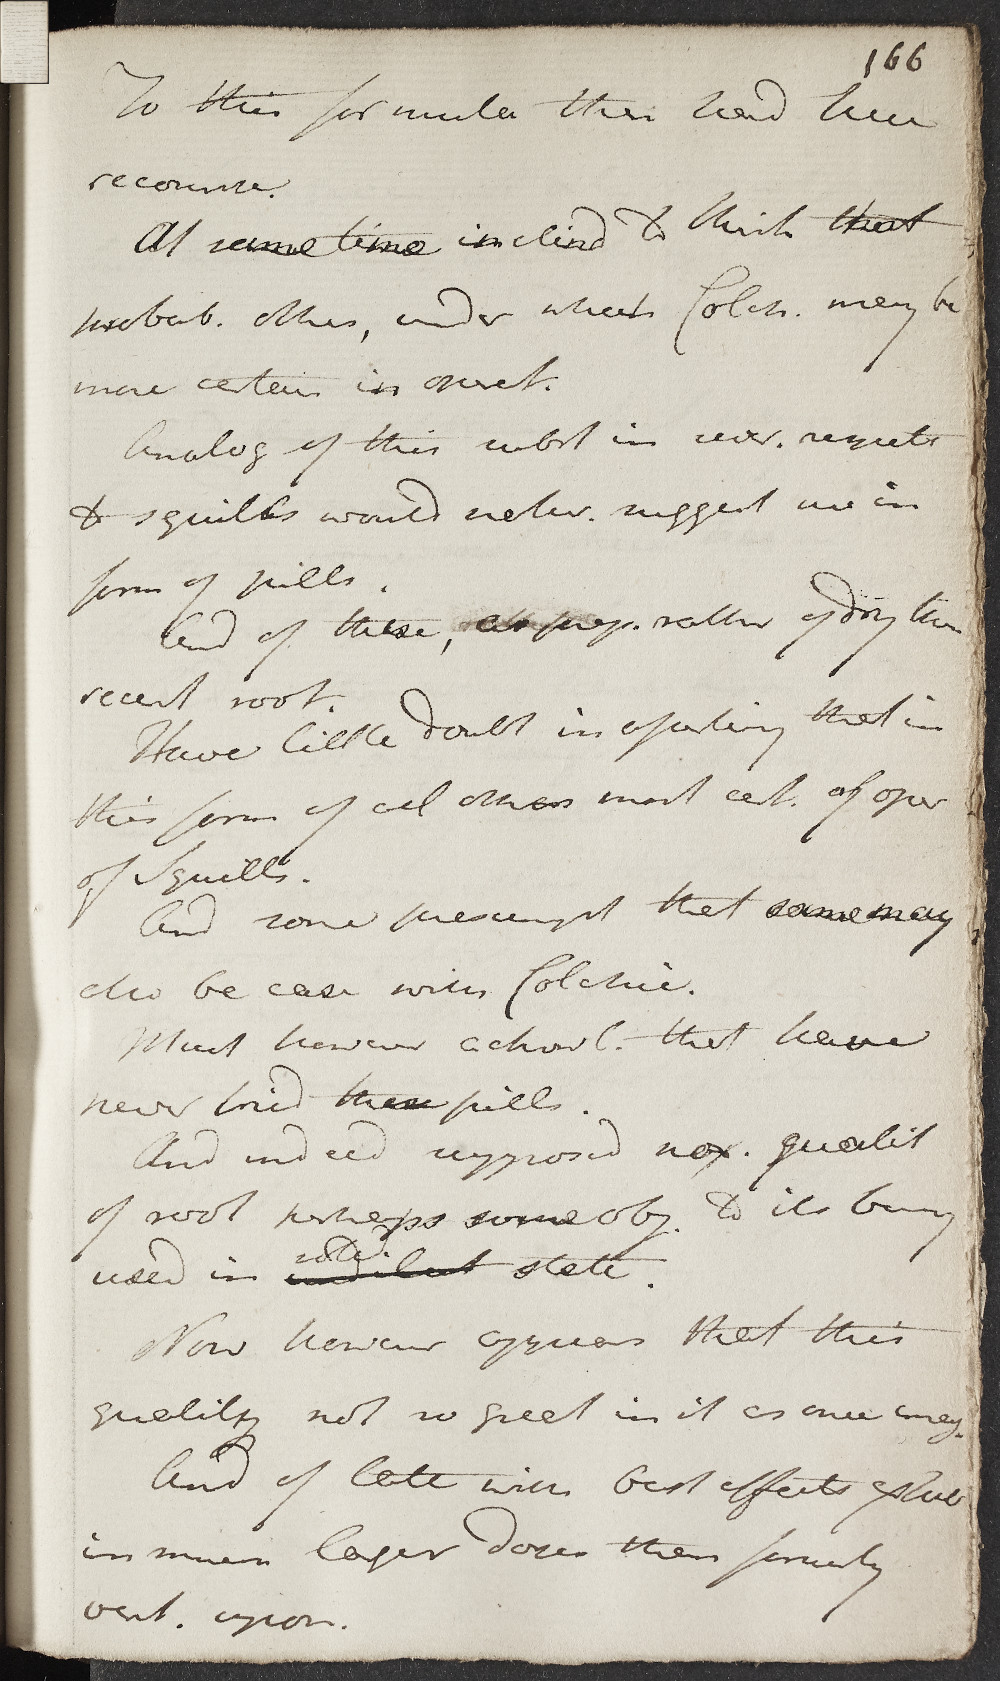 166
To this formula then had here
recourse.
At same time inclind to think that
probab. others, under which Colch. may be
more certain in operat.
Analog of this subst in sever. respects
to squills would natur. suggest use in
form of pills.
And of these, as prep. rather of dry than
recent root.
Have little doubt in asserting that in
this form of all others most cert. of oper
of Squills.
And some presumpt that same may
also be case with Colchic.
Must however acknowl. that have
never tried these pills.
And indeed supposed nox. qualit
of root perhaps some obj. to its being
used in solid state.
Now however appears that this
quality not so great in it as once imag.
And of late with best effects exhib
in much larger doses than formerly
vent. upon.